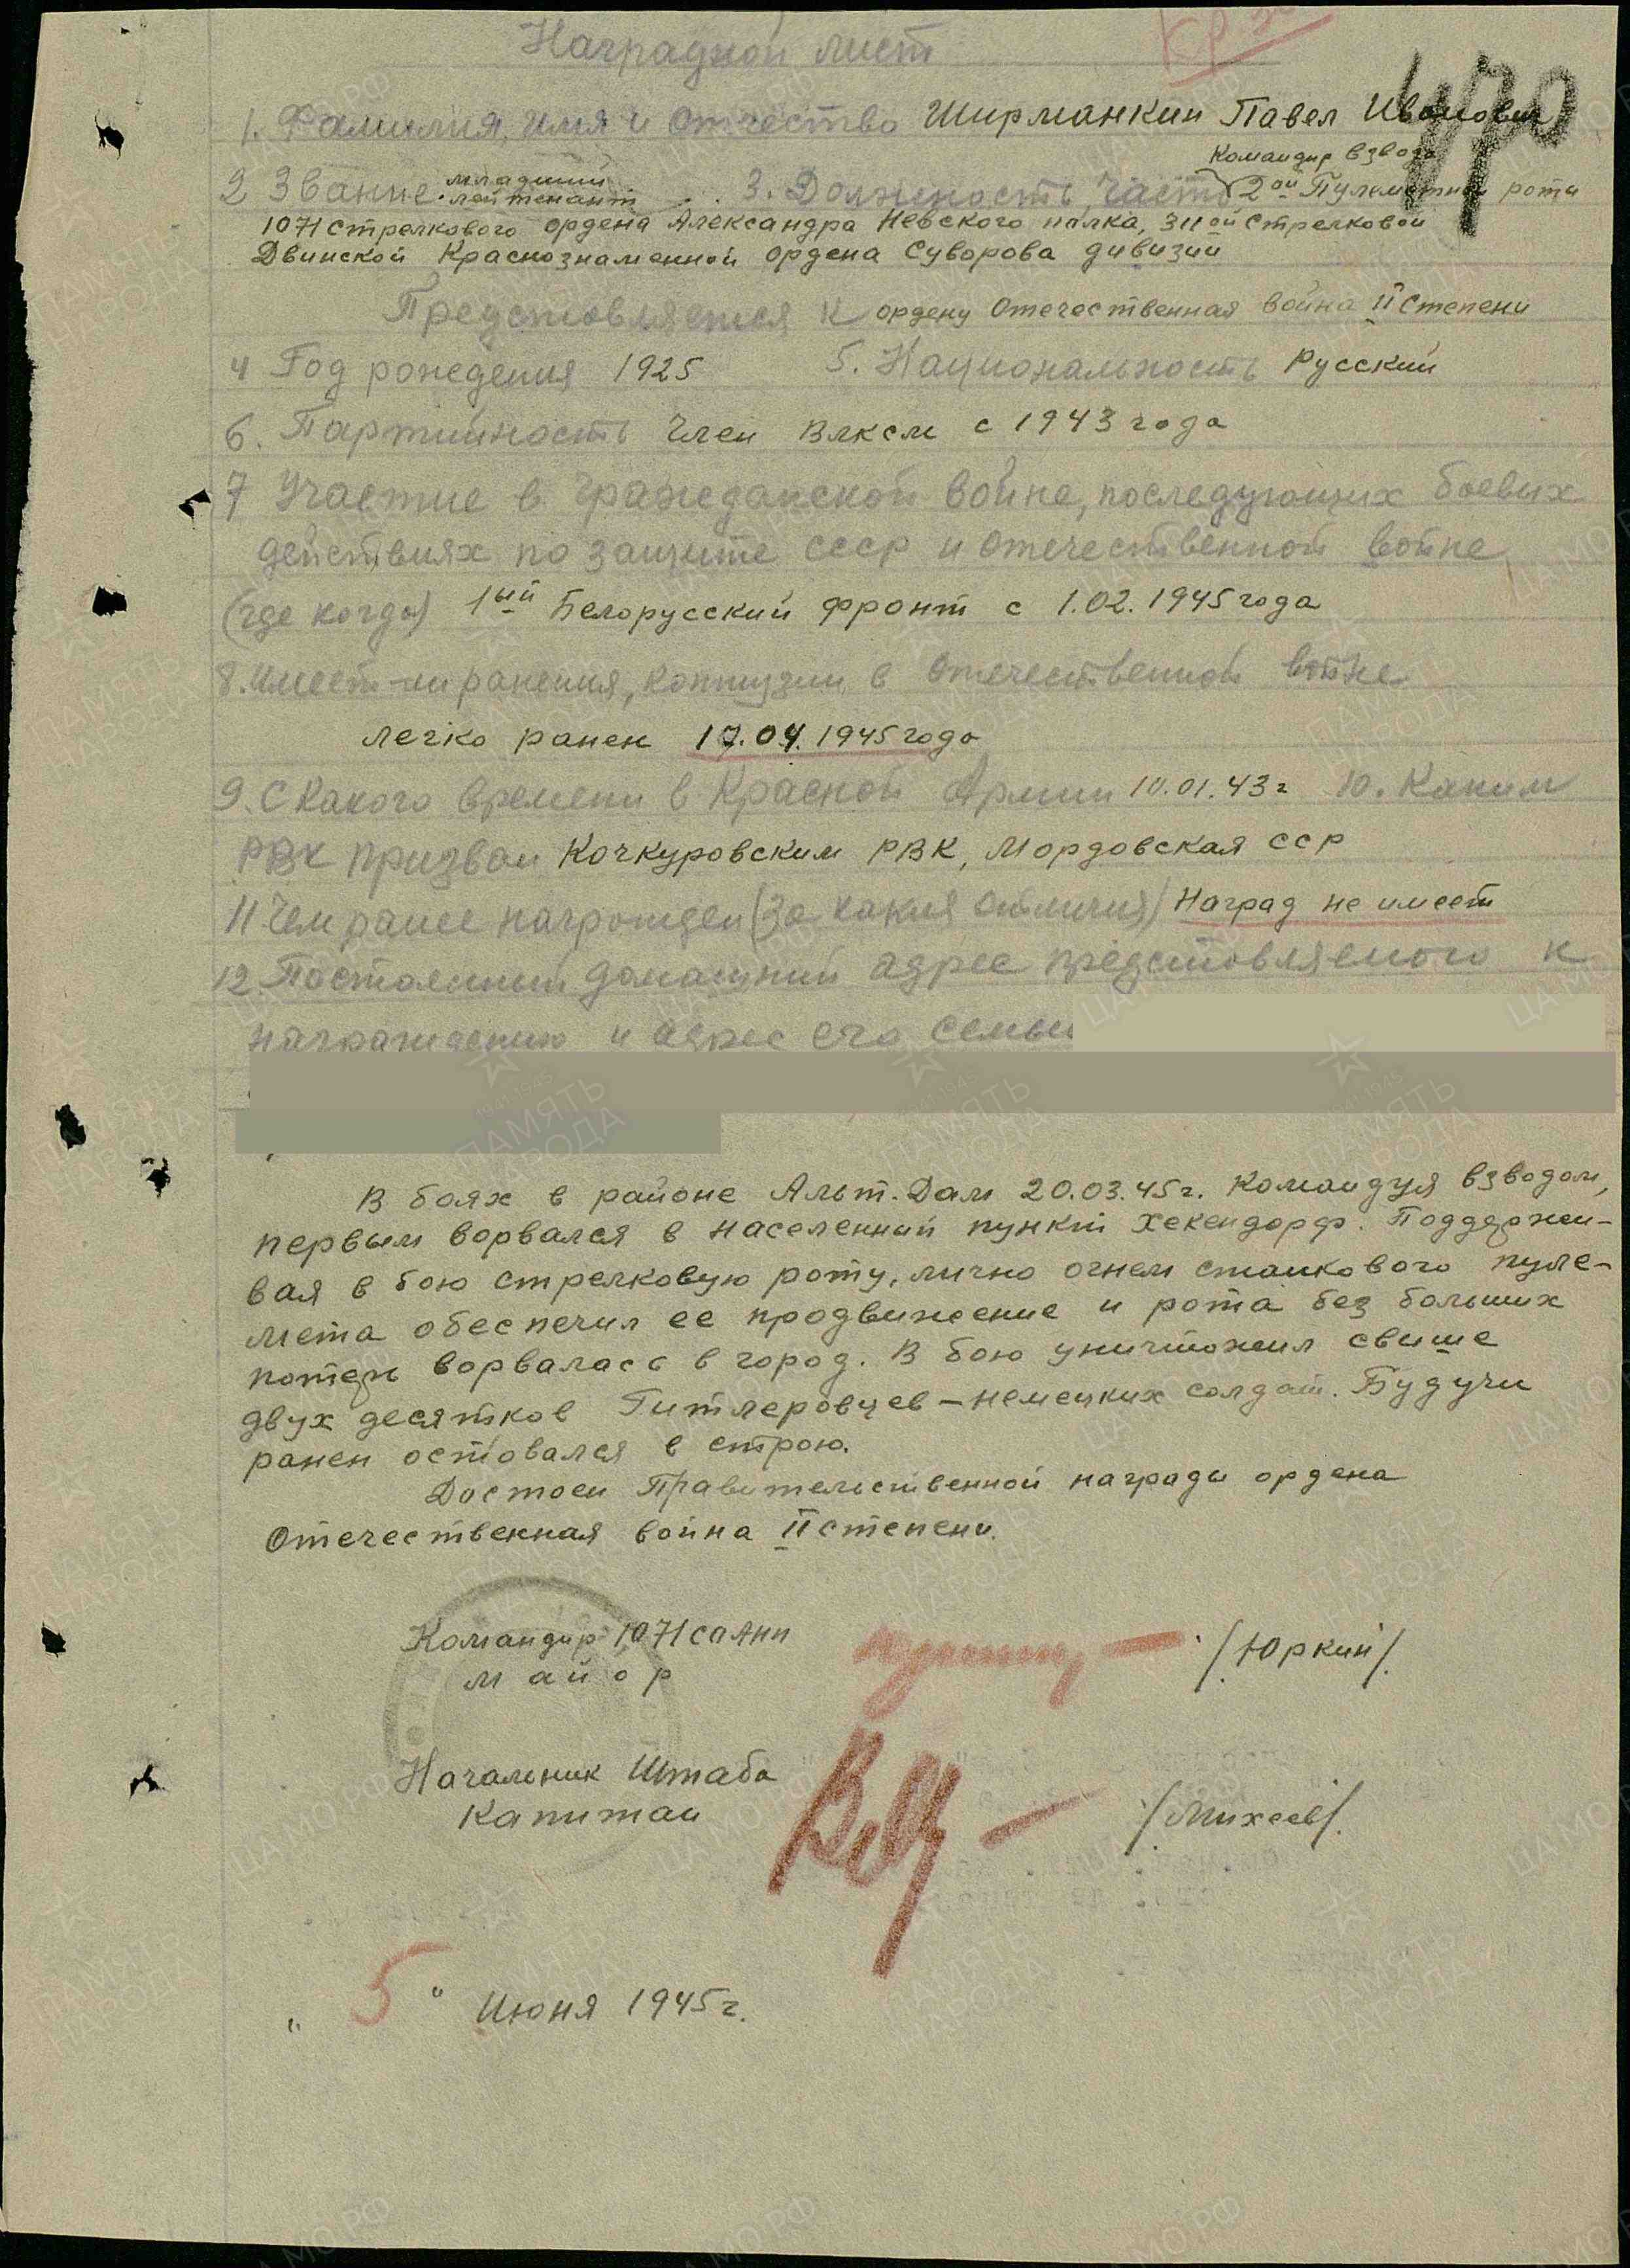 Наградной лист
Кр Зв
470
1. Фамилия, имя и отчество Ширманкин Павел Иванович
Командир взвода
2 Звание младший лейтенант 3. Должность, часть 2ой Пулеметной роты
1071 стрелкового ордена Александра Невского полка, 311ой стрелковой
Двинской Краснознаменной ордена Суворова дивизии
Представляется к ордену Отечественная война II степени
4 Год рождения 1925 5. Национальность Русский
6. Партийность Член ВЛКСМ с 1943 года
7 Участие в гражданской войне, последующих боевых
действиях по защите СССР и отечественной войне
(где когда) 1ый Белорусский фронт с 1.02.1945 года
8. Имеет-ли ранения, контузии в отечественной войне
легко ранен 17.04.1945 года
9. С какого времени в Красной Армии 10.01.43г 10. Каким
РВК призван Кочкуровским РВК, Мордовская ССР
11 Чем ранее награжден (за какия отличия) Наград не имеет
12 Постоянный домашний адрес представляемого к
награждению и адрес его семьи
В боях в районе Альт. Дам 20.03.45г. командуя взводом,
первым ворвался в населенный пункт Хекендорф. Поддержи-
вая в бою стрелковую роту, лично огнем станкового пуле-
мета обеспечил ее продвижение и рота без больших
потерь ворвалась в город. В бою уничтожил свыше
двух десятков Гитлеровцев – немецких солдат. Будучи
ранен оставался в строю.
Достоен Правительственной награды ордена
Отечественная война II степени.
Командир 1071 сп АНп
майор /Юркин/.
Начальник Штаба
Капитан /Михеев/.
" 5 " Июня 1945г.